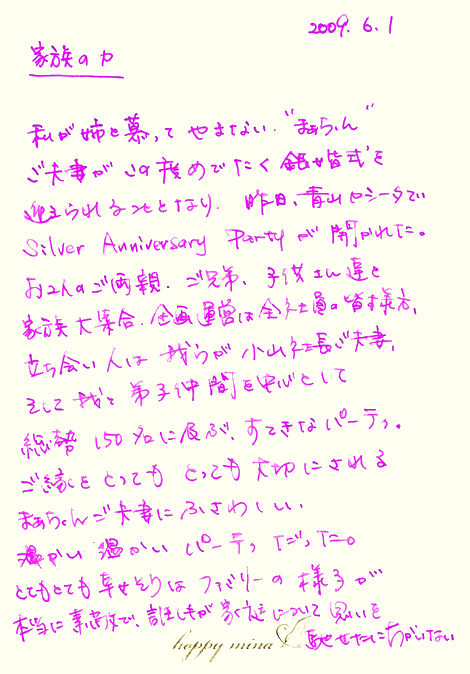 2009. 6. 1
家族の力
私が姉と慕ってやまない、"まぁちゃん"
ご夫妻がこの度めでたく銀婚式を
迎えられることとなり、昨日、青山ロシータで
Silver Anniversary Partyが開かれた。
お2人のご両親、ご兄弟、子供さん達と
家族大集合、企画運営は全社員の皆様方、
立ち会い人は我らが小山社長ご夫妻、
そして我々弟子仲間を中心として
総勢150名に及ぶ、すてきなパーティ。
ご縁をとってもとっても大切にされる
まぁちゃんご夫妻にふさわしい
温かい温かいパーティだった。
とてもとても幸せそうなファミリーの様子が
本当に素敵で、誰しもが家庭について思いを
馳せたにちがいない
happy mina